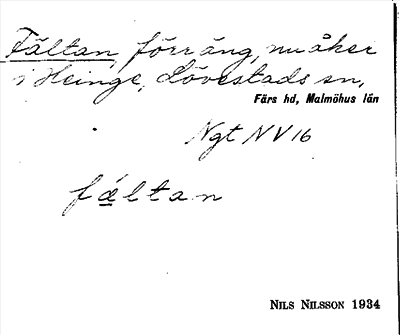 Fältan, förr äng, nu åker
i Heinge, Lövestads sn,
Färs hd, Malmöhus län
Ngt NV 16
fæ´ltan
NILS NILSSON 1934